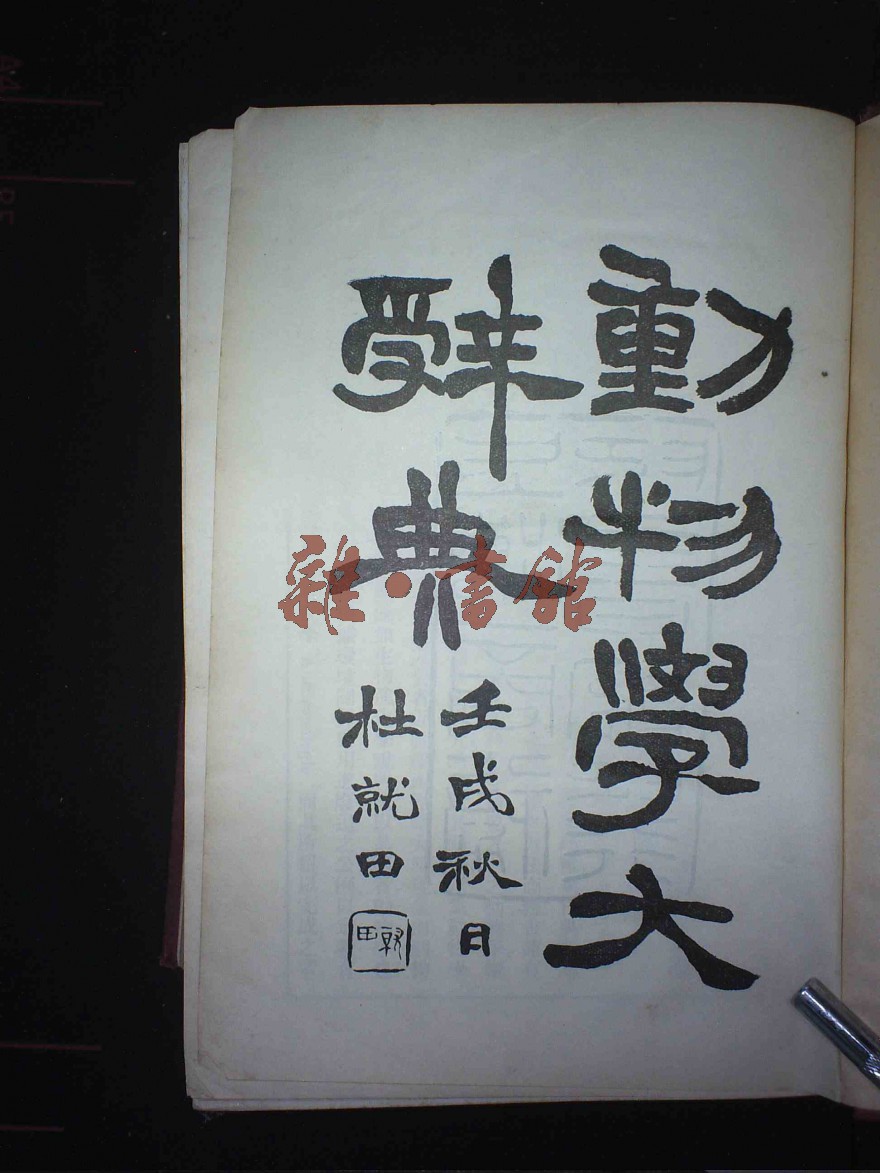 動物學大
辭典
壬戌秋日
杜就田
雜·書館